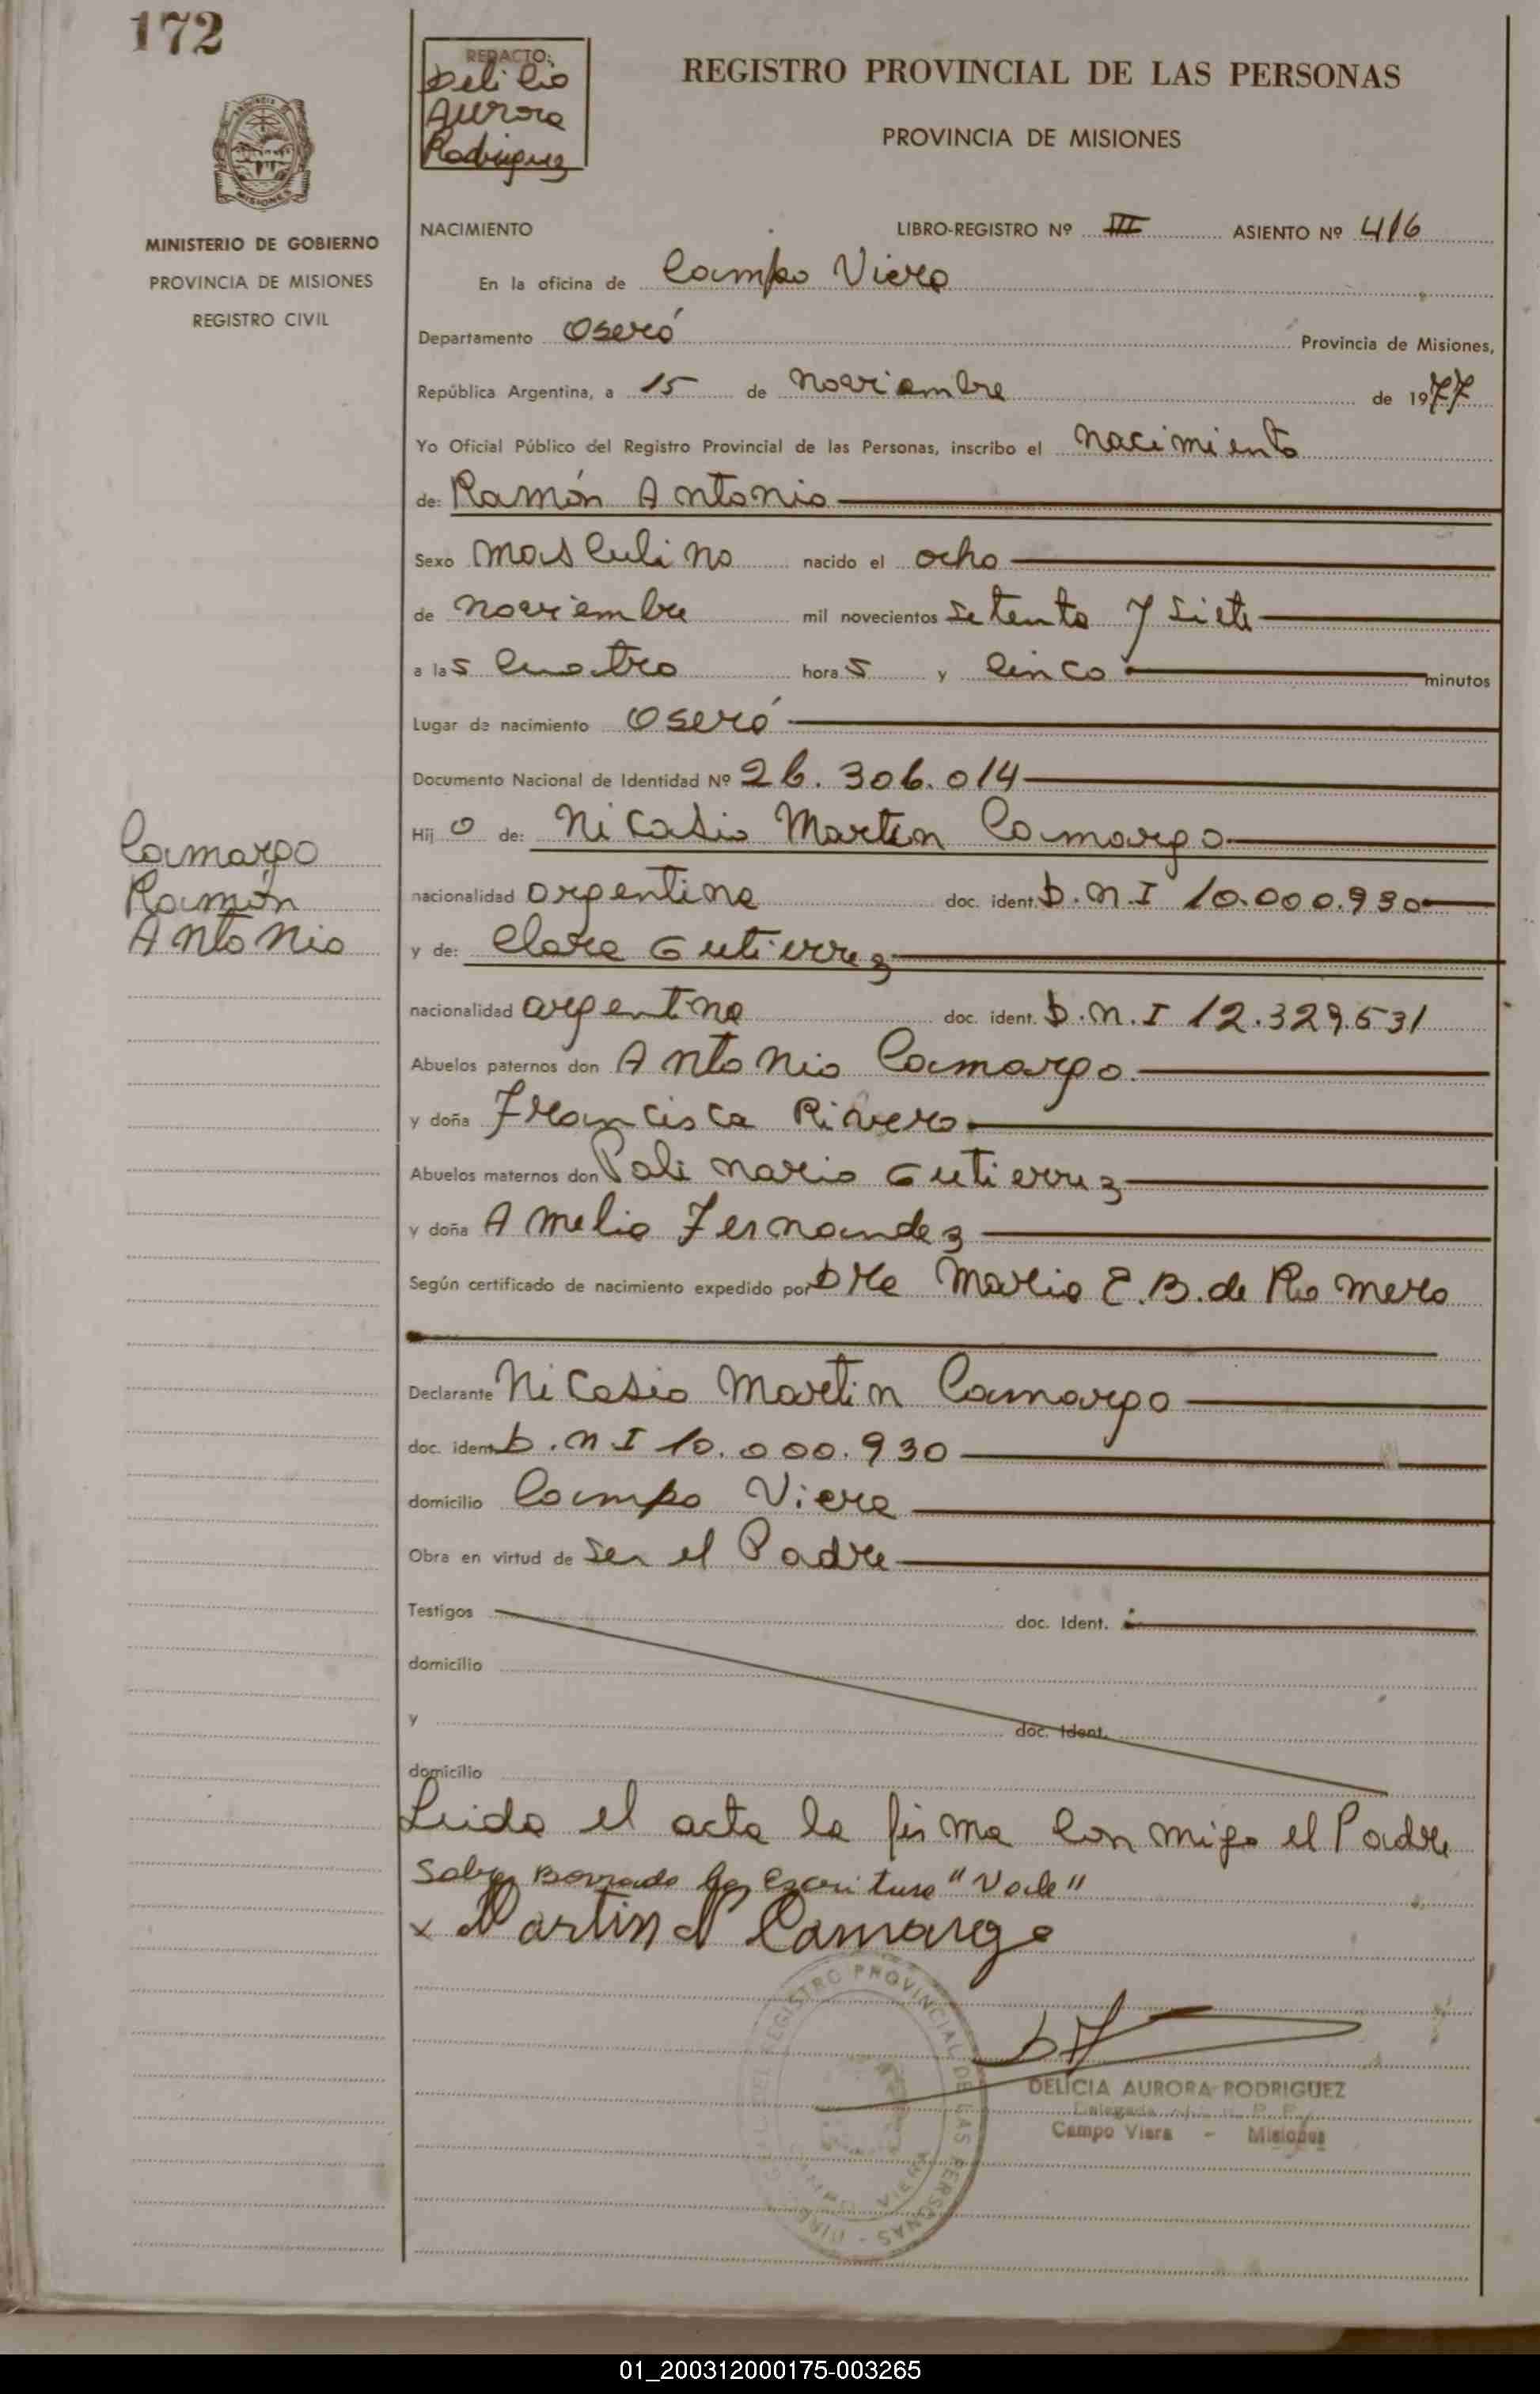 172
REDACTO:
Delicia
Aurora
Rodriguez
REGISTRO PROVINCIAL DE LAS PERSONAS
PROVINCIA DE MISIONES
MISIONES
MINISTERIO DE GOBIERNO
PROVINCIA DE MISIONES
REGISTRO CIVIL
NACIMIENTO LIBRO-REGISTRO Nº III ASIENTO Nº 416
En la oficina de Campo Viera
Departamento Oberá Provincia de Misiones,
República Argentina, a 15 de noviembre de 1977
Yo Oficial Público del Registro Provincial de las Personas, inscribo el nacimiento
de: Ramón Antonio
Sexo masculino nacido el ocho
de noviembre mil novecientos setenta y siete
a las cuatro horas y cinco minutos
Lugar de nacimiento Oberá
Documento Nacional de Identidad Nº 26.306.014
Hijo de: Nicasio Martin Camargo
nacionalidad argentina doc. ident. D.N.I 10.000.930
y de: Clara Gutierrez
nacionalidad argentina doc. ident. D.N.I 12.329.531
Abuelos paternos don Antonio Camargo
y doña Francisca Rivero
Abuelos maternos don Polinario Gutierrez
y doña Amelia Fernandez
Según certificado de nacimiento expedido por Dra Maria E.B. de Romero
Declarante Nicasio Martin Camargo
doc. ident. D.N.I 10.000.930
domicilio Campo Viera
Obra en virtud de ser el Padre
Testigos doc. Ident.
domicilio
y doc. Ident.
domicilio
Leida el acta la firma conmigo el Padre
Sobre Borrado escritura "Vale"
x Martin N Camargo
Camargo
Ramón
Antonio
REGISTRO PROVINCIAL DE LAS PERSONAS
CAMPO VIERA
DELICIA AURORA RODRIGUEZ
Delegada R. P. P.
Campo Viera - Misiones
01_200312000175-003265